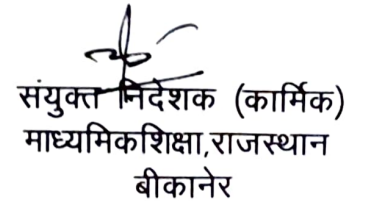 संयुक्त निदेशक (कार्मिक)
माध्यमिकशिक्षा,राजस्थान
बीकानेर